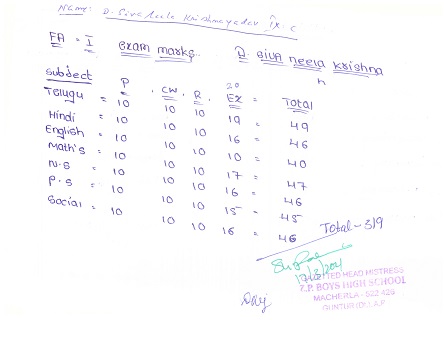 Name: D. Siva Neela Krishnayadav IX. C
FA - I exam marks. D. siva neela krishna
Subject P . CW. R. 20 Ex = Total
Telugu = 10 10 10 19 = 49
Hindi = 10 10 10 16 = 46
English = 10 10 10 10 = 40
Math's = 10 10 10 17 = 47
N.S = 10 10 10 16 = 46
P.S = 10 10 10 15 = 45
Social = 10 10 10 16 = 46
Total - 319
HEAD MISTRESS
Z.P. BOYS HIGH SCHOOL
MACHERLA - 522 426
GUNTUR (Dt), A.P